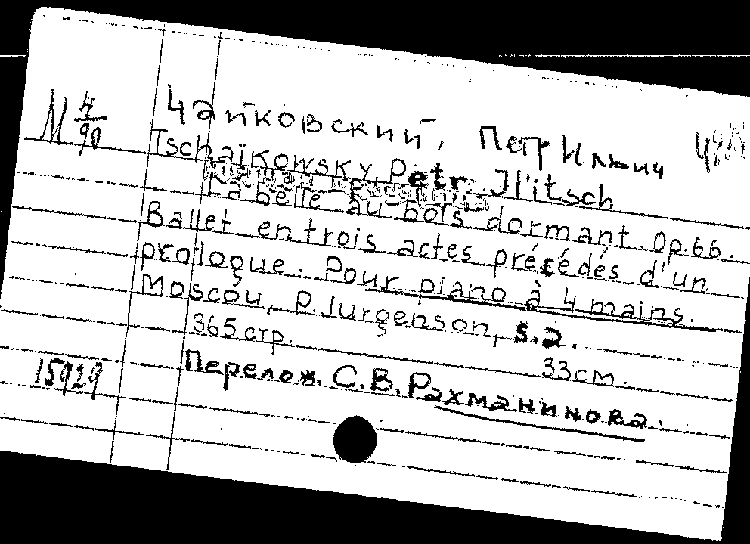 М 4/90
Чайковский, Петр Ильич
Tschaïkowsky Petr Il'itsch
La belle au bois dormant Op. 66.
Ballet en trois actes précédés d'un
prologue. Pour piano à 4 mains.
Moscou, P. Jurgenson, s.a.
365 стр. 33 см.
15929 Перелож. С. В. Рахманинова.